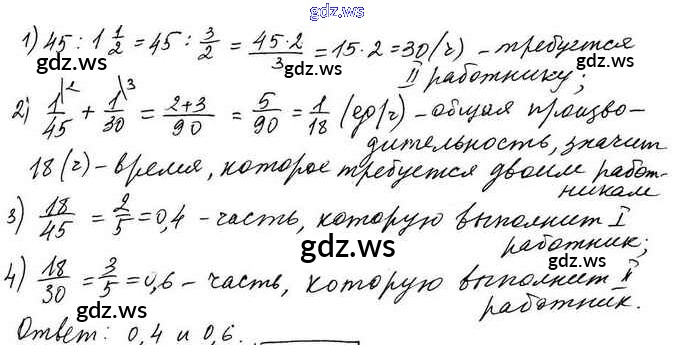 gdz.ws
1) 45 : 1 1/2 = 45 : 3/2 = 45·2/3 = 15·2 = 30 (ч) – требуется
gdz.ws
II работнику;
2) 1/45 |2 + 1/30 |3 = 2+3/90 = 5/90 = 1/18 (ед/ч) – общая произво-
дительность, значит
18 (ч) – время, которое требуется двоим работ-
никам
3) 18/45 = 2/5 = 0,4 – часть, которую выполнит I
gdz.ws
работник;
4) 18/30 = 3/5 = 0,6 – часть, которую выполнит II
gdz.ws
работник.
Ответ: 0,4 и 0,6.